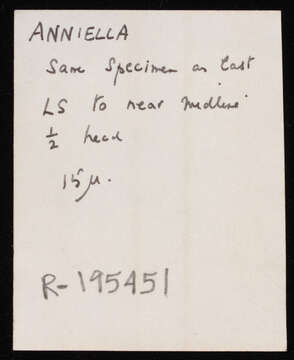 ANNIELLA
Same Specimen as last
LS to near midline
½ head
15 µ.
R-195451